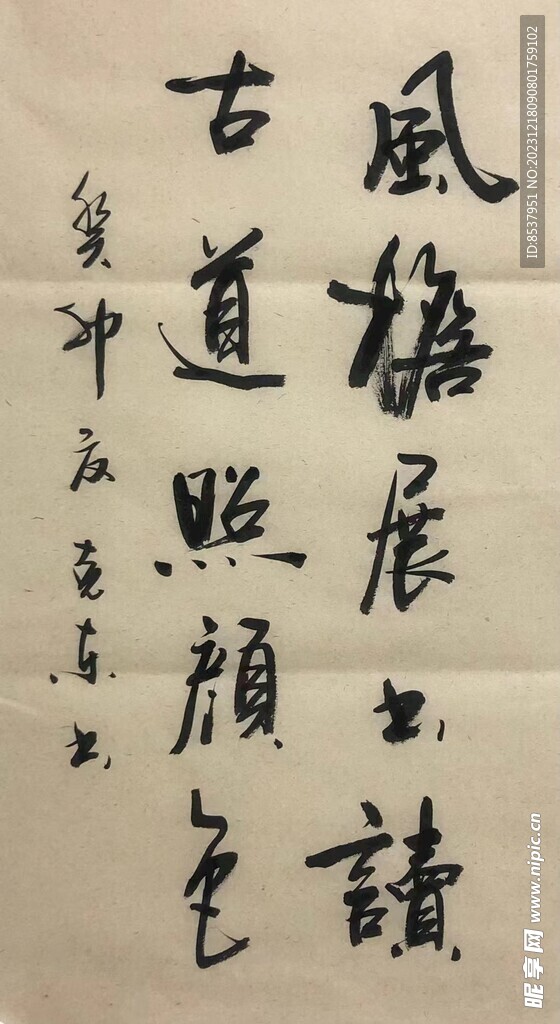 風檐展书讀
古道照顔色
癸卯夜克东书
ID:8537951 NO:20231218090801759102
昵享网 www.nipic.cn